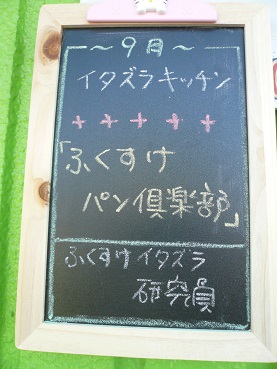 ～9月～
イタズラキッチン
+ + + + +
「ふくすけ
パン倶楽部」
ふくすけイタズラ
研究員